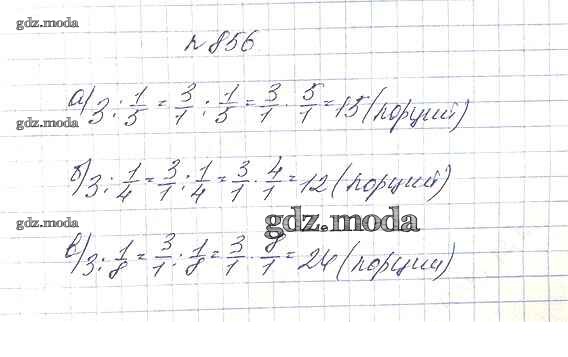 gdz.moda
№ 856
а) 3 : 1/5 = 3/1 : 1/5 = 3/1 · 5/1 = 15 (порций)
gdz.moda
б) 3 : 1/4 = 3/1 : 1/4 = 3/1 · 4/1 = 12 (порций)
gdz.moda
gdz.moda
в) 3 : 1/8 = 3/1 : 1/8 = 3/1 · 8/1 = 24 (порций)